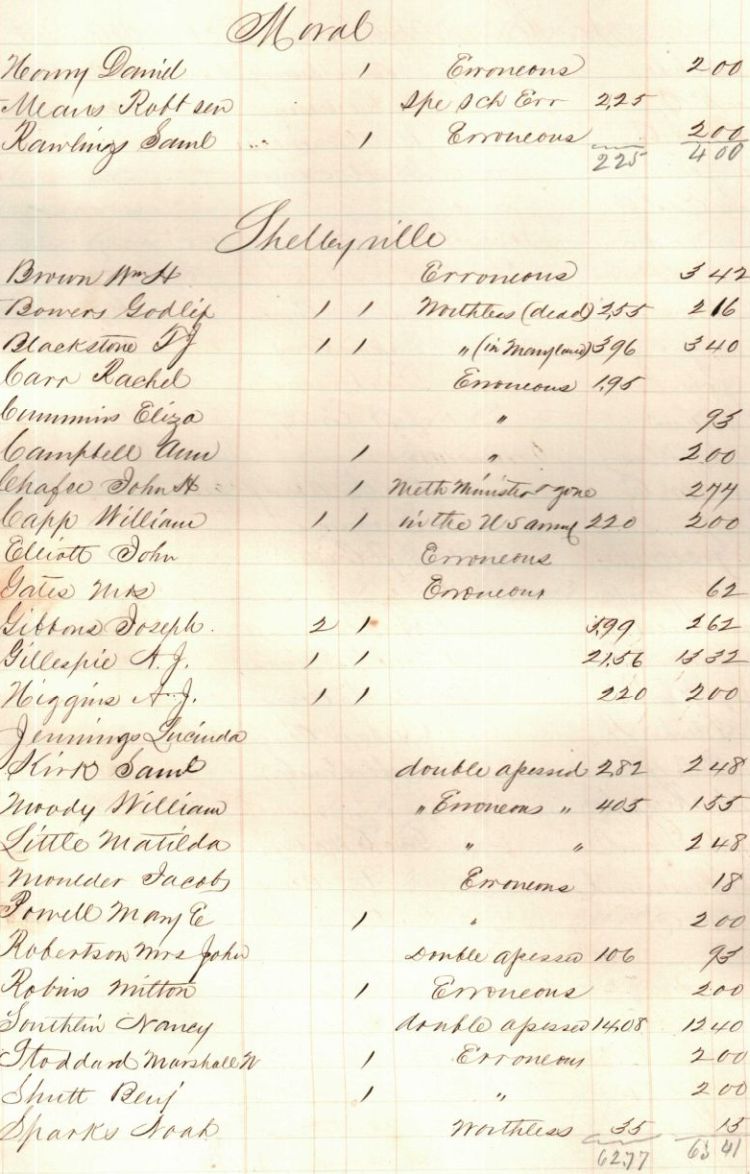 Moral
Henry Daniel 1 Erroneous 200
Means Robt sen Spe Sch Err 2,25
Rawlings Saml " 1 Erroneous 200
225 400
Shelbyville
Brown Wm H Erroneous 342
Bowers Godlip 1 1 Worthless (dead) 2,55 216
Blackstone T J 1 1 " (in Maryland) 396 340
Carr Rachel Erroneous 1,95
Cummins Eliza " 93
Campbell Ann 1 " 200
Chafee John H 1 Meth Minister gone 274
Capp William 1 1 in the U S army 220 200
Elliott John Erroneous
Gates Mrs Erroneous 62
Gibbons Joseph. 2 1 3,99 262
Gillespie A. J. 1 1 21,56 1332
Higgins A. J. 1 1 220 200
Jennings Lucinda
Kirk Saml double apessed 282 248
Moody William " Erroneous " 405 155
Little Matilda " " 248
Moulder Jacob Erroneous 18
Powell Mary E 1 " 200
Robertson Mrs John Double apessed 106 93
Robins Milton 1 Erroneous 200
Southlin Nancy double apessed 14,08 1240
Stoddard Marshall W 1 Erroneous 200
Shutt Benj 1 " 200
Sparks Noah Worthless 35 15
62,77 63 41